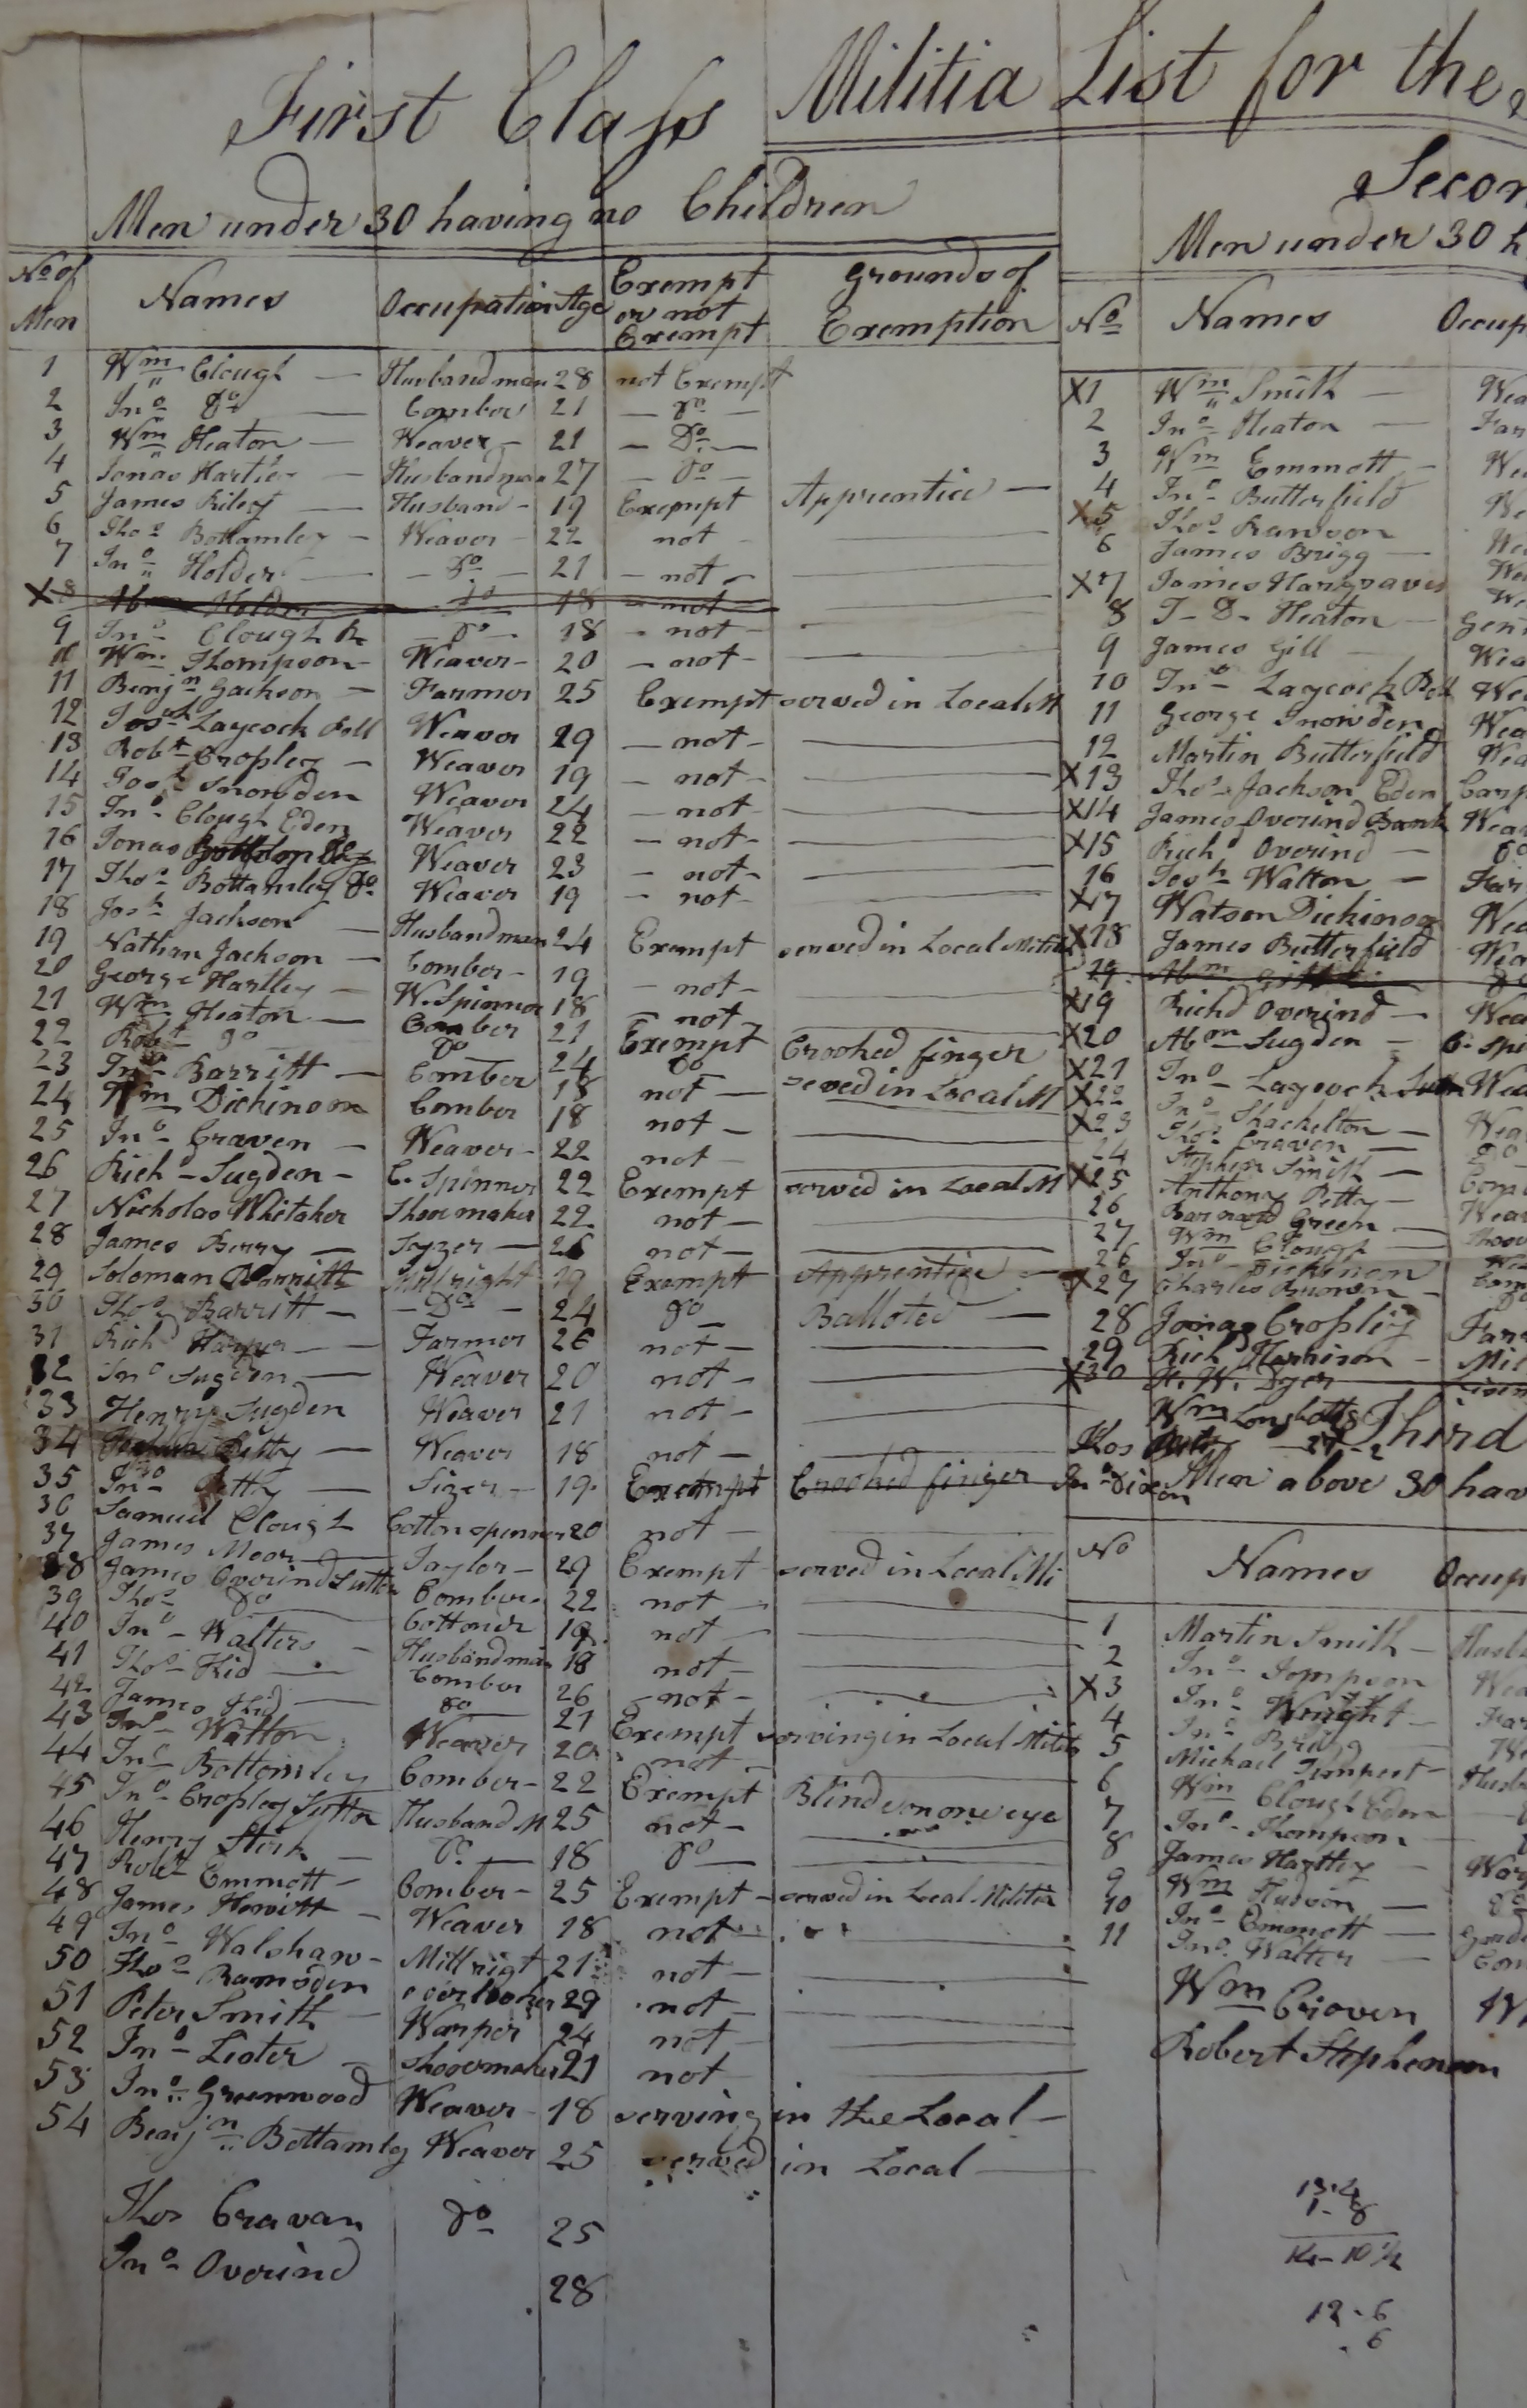 First Class Militia List for the
Men under 30 having no Children
No of Men Names Occupation Age Exempt or not Exempt Grounds of Exemption
1 Wm Clough — Husbandman 28 not Exempt
2 Jno Do — Comber 21 — Do —
3 Wm Heaton — Weaver — 21 — Do —
4 Jonas Hartley — Husbandman 27 — Do —
5 James Riley — Husband — 19 Exempt Apprentice —
6 Thos Bottamley — Weaver — 22 not —
7 Jno Holder — Do — 21 — not —
X8 Holder Do 18 — not —
9 Jno Clough — Do — 18 — not —
10 Wm Thompson — Weaver — 20 — not —
11 Benjn Jackson — Farmer 25 Exempt served in Local M
12 Josh Laycock Weaver 29 — not —
13 Robt Cropley — Weaver 19 — not —
14 Josh Snowden Weaver 24 — not —
15 Jno Clough Eden Weaver 22 — not —
16 Jonas Weaver 23 — not —
17 Thos Bottamley Do Weaver 19 — not —
18 Josh Jackson — Husbandman 24 Exempt served in Local Militia
19 Nathan Jackson — Comber — 19 — not —
20 George Hartley — W. Spinner 18 — not —
21 Wm Heaton — Comber 21 Exempt Crooked finger
22 Robt Do Do 24 Do served in Local M
23 Jno Barritt — Comber 18 not —
24 Wm Dickinson Comber 18 not —
25 Jno Craven — Weaver — 22 not —
26 Rich — Sugden — C. Spinner 22 Exempt served in Local M
27 Nicholas Whitaker Shoemaker 22 not —
28 James Berry — 26 not —
29 Soloman Barritt Millright 19 Exempt Apprentice —
30 Thos Barritt — Do — 24 Do Balloted —
31 Richd — Farmer 26 not —
32 Jno Sugden — Weaver 20 not —
33 Henry Sugden Weaver 21 not —
34 Petty — Weaver 18 not —
35 Jno Petty — Sizer — 19 Exempt Crooked finger
36 Samuel Clough Cotton spinner 20 not —
37 James Moor — Taylor — 29 Exempt served in Local Mi
38 James Overind Sutton Comber 22 not —
39 Thos Do 19 not —
40 Jno — Walters — Husbandman 18 not —
41 Thos Kid — Comber 26 — not —
42 James Kid — Do 21 Exempt serving in Local Militia
43 Jno Watton Weaver 20 not —
44 Jno Bottomley Comber — 22 Exempt Blind on one eye
45 Jno Cropley Sutton Husband M 25 not —
46 Henry Stirk — Do — 18 Do —
47 Robt Emmott — Comber — 25 Exempt — served in Local Militia
48 James Hewitt — Weaver 18 not —
49 Jno Walshaw — Millrigt 21 not —
50 Thos Ramsden overlooker 29 not —
51 Peter Smith — Warper 24 not —
52 Jno Lister — Shooemaker 21 not
53 Jno Greenwood Weaver — 18 serving in the Local —
54 Benjn Bottamley Weaver 25 served in Local —
Thos Cravan Do 25
Jno Overind 28
Secon
Men under 30 h
No Names Occup
X1 Wm Smith — Wea
2 Jno Heaton — Far
3 Wm Emmott — We
4 Jno Butterfield We
X5 Thos Rawson
6 James Brigg — We
X7 James Hargraves We
8 J — D — Heaton — Gen
9 James Gill — Wea
10 Jno Laycock We
11 George Snowden Wea
12 Martin Butterfield Wea
X13 Thos Jackson Eden Carp
X14 James Overind Bank Wea
X15 Richd Overind — Do
16 Josh Walton — Far
X17 Watson Dickinson Wea
X18 James Butterfield Wea
19 Abm
X19 Richd Overind — Wea
X20 Abm Sugden — C. Spi
X21 Jno — Laycock Wea
X22 Jno Shackelton — Wea
X23 Thos Craven — Do
24 Stephen Smith — Com
X25 Anthony Petty — Wea
26 Barnard Green —
27 Wm Clough —
26 Jno Dickinson
X27 Charles Brown —
28 Jonas Cropley Farm
29 Richd Harrison — Mil
X30 H. W. Dyer
Wm Longbottom
Thos
Jno Dixon
Third
Men above 30 hav
No Names Occup
1 Martin Smith — Husb
2 Jno Wea
X3 Jno Wright — Far
4 Jno We
5 Michael Tempest — Husb
6 Wm Clough Eden —
7 Jno Thompson —
8 James Hartley — War
9 Wm Hudson — Do
10 Jno Emmott —
11 Jno Walter — Com
Wm Craven W
Robert Stephenson
13.4
1-8
14-10½
12.6
.6